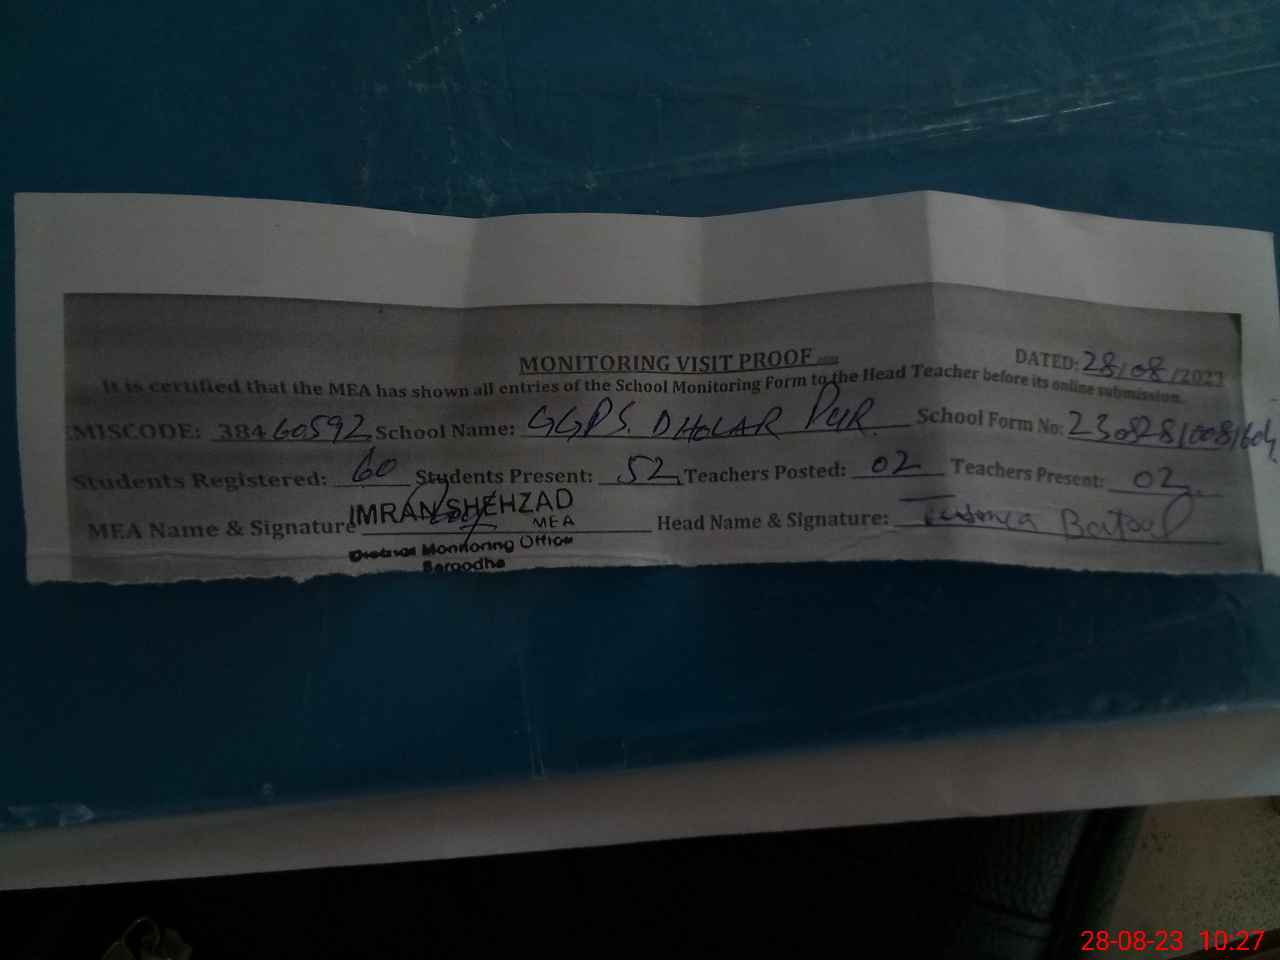 MONITORING VISIT PROOF
DATED: 28/08/2023
It is certified that the MEA has shown all entries of the School Monitoring Form to the Head Teacher before its online submission.
EMISCODE: 38460592 School Name: GGPS. DHOLAR PUR. School Form No: 23082810081604
Students Registered: 60 Students Present: 52 Teachers Posted: 02 Teachers Present: 02
MEA Name & Signature IMRAN SHEHZAD Head Name & Signature: Batool
MEA
District Monitoring Office
Sargodha
28-08-23 10:27